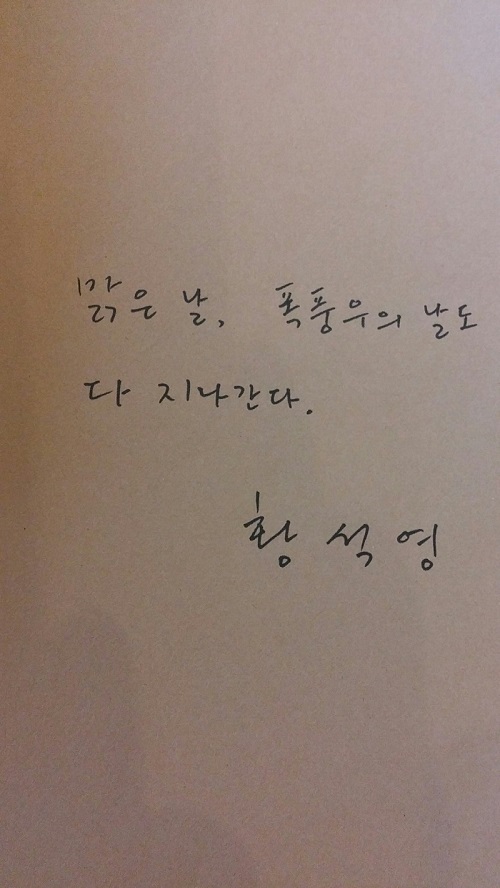 맑은 날, 폭풍우의 날도
다 지나간다.
황석영